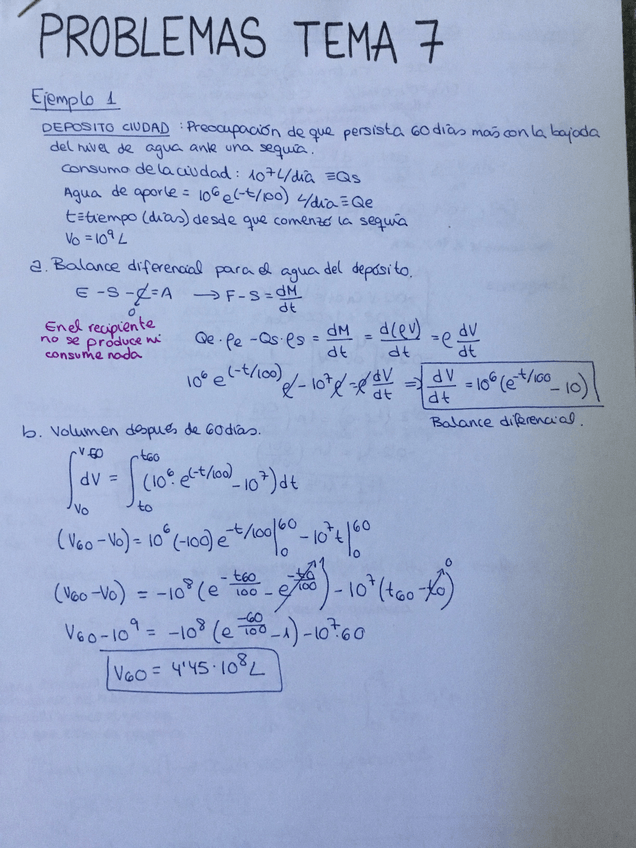 PROBLEMAS TEMA 7
Ejemplo 1
DEPOSITO CIUDAD : Preocupación de que persista 60 días más con la bajada
del nivel de agua ante una sequía.
Consumo de la ciudad : 10⁷ L/día ≡ Qs
Agua de aporte = 10⁶ e(-t/100) L/día ≡ Qe
t ≡ tiempo (días) desde que comenzó la sequía
V₀ = 10⁹ L
a. Balance diferencial para el agua del depósito.
E - S - C = A → F - S = dM/dt
0
En el recipiente
no se produce ni
consume nada
Qe · ρe - Qs · ρs = dM/dt = d(ρV)/dt = ρ dV/dt
10⁶ e^(-t/100) ρ - 10⁷ ρ = ρ dV/dt ⇒ dV/dt = 10⁶ (e^-t/100 - 10)
Balance diferencial.
b. Volumen después de 60 días.
∫_V₀^V60 dV = ∫_t0^t60 (10⁶ · e^(-t/100) - 10⁷) dt
(V60 - V0) = 10⁶ (-100) e^-t/100 |₀⁶⁰ - 10⁷ t |₀⁶⁰
(V60 - V0) = -10⁸ (e^-t60/100 - e^-t0/100 1) - 10⁷ (t60 - t0 0)
V60 - 10⁹ = -10⁸ (e^-60/100 - 1) - 10⁷ · 60
V60 = 4'45 · 10⁸ L